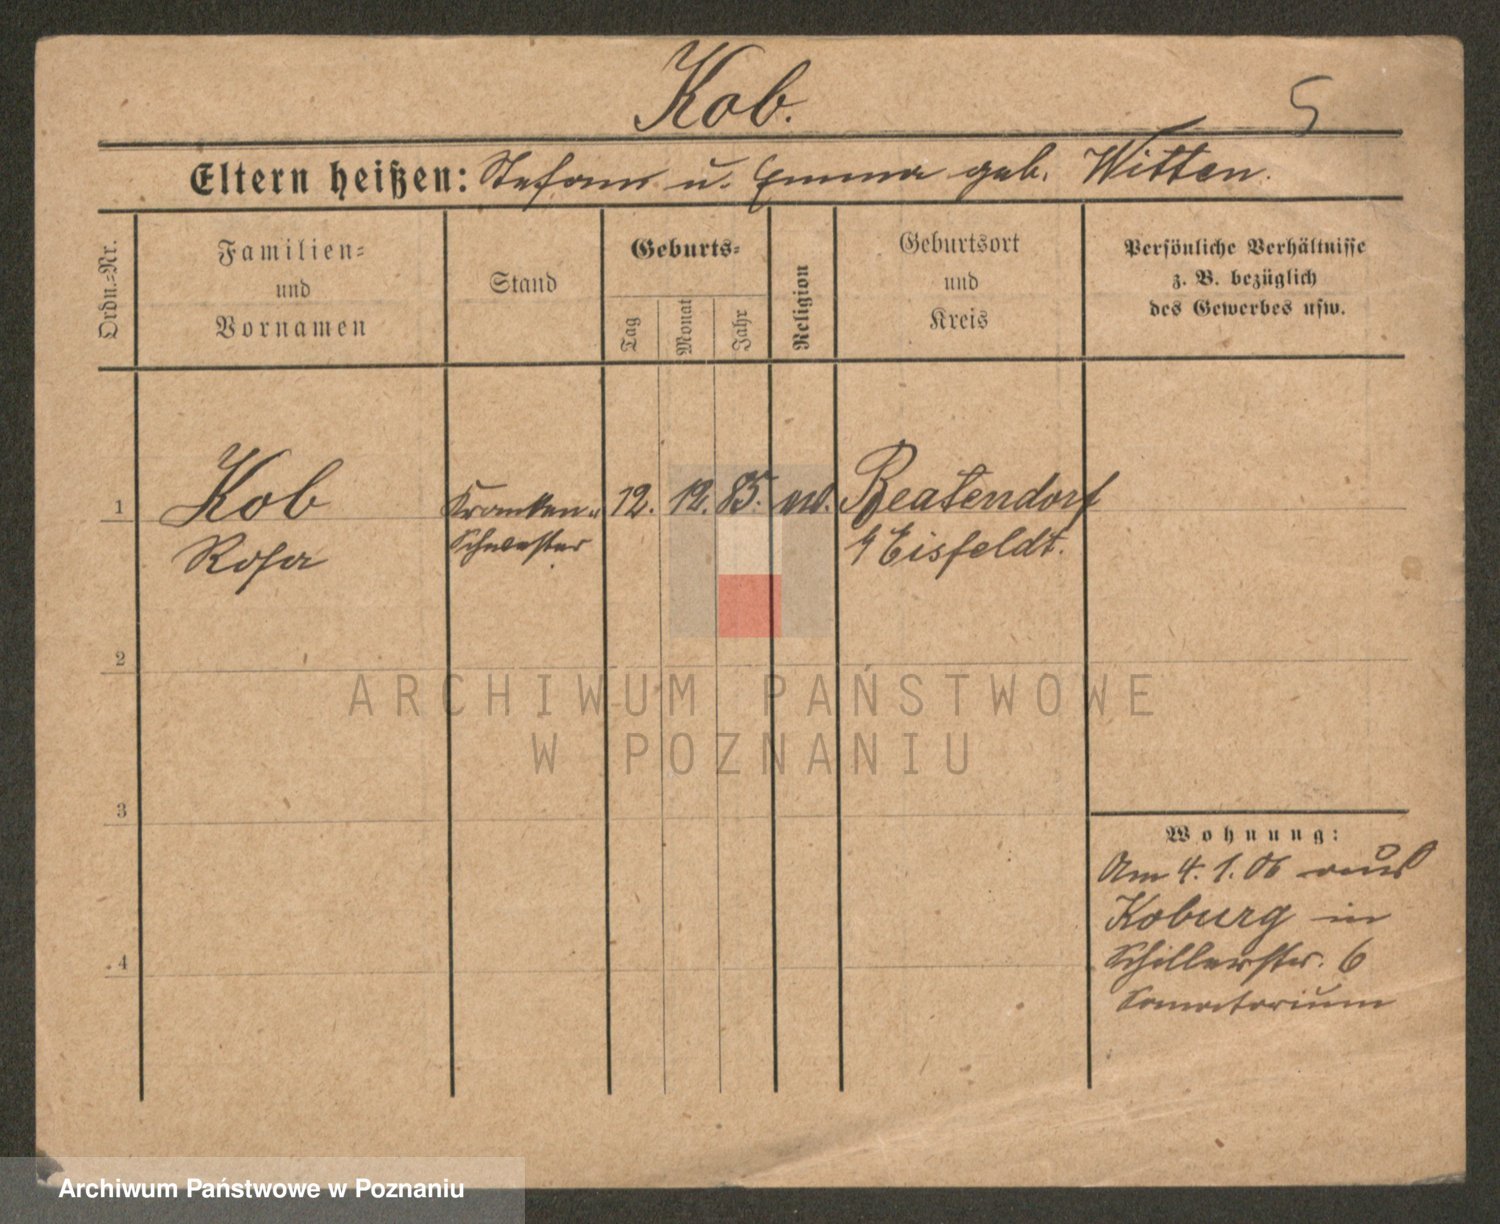 Kob.
5
Eltern heißen: Stefan u. Emma geb. Witten.
Ordn.-Nr.
Familien-
und
Vornamen
Stand
Geburts-
Tag
Monat
Jahr
Religion
Geburtsort
und
Kreis
Persönliche Verhältnisse
z. B. bezüglich
des Gewerbes usw.
1
Kob
Rosa
Kranken-
Schwester
12. 12. 85.
Beatendorf
Eisfeldt.
2
ARCHIWUM PAŃSTWOWE
W POZNANIU
3
Wohnung:
Am 4. 1. 06 aus
Koburg in
Schillerstr. 6
Sanatorium
4
Archiwum Państwowe w Poznaniu